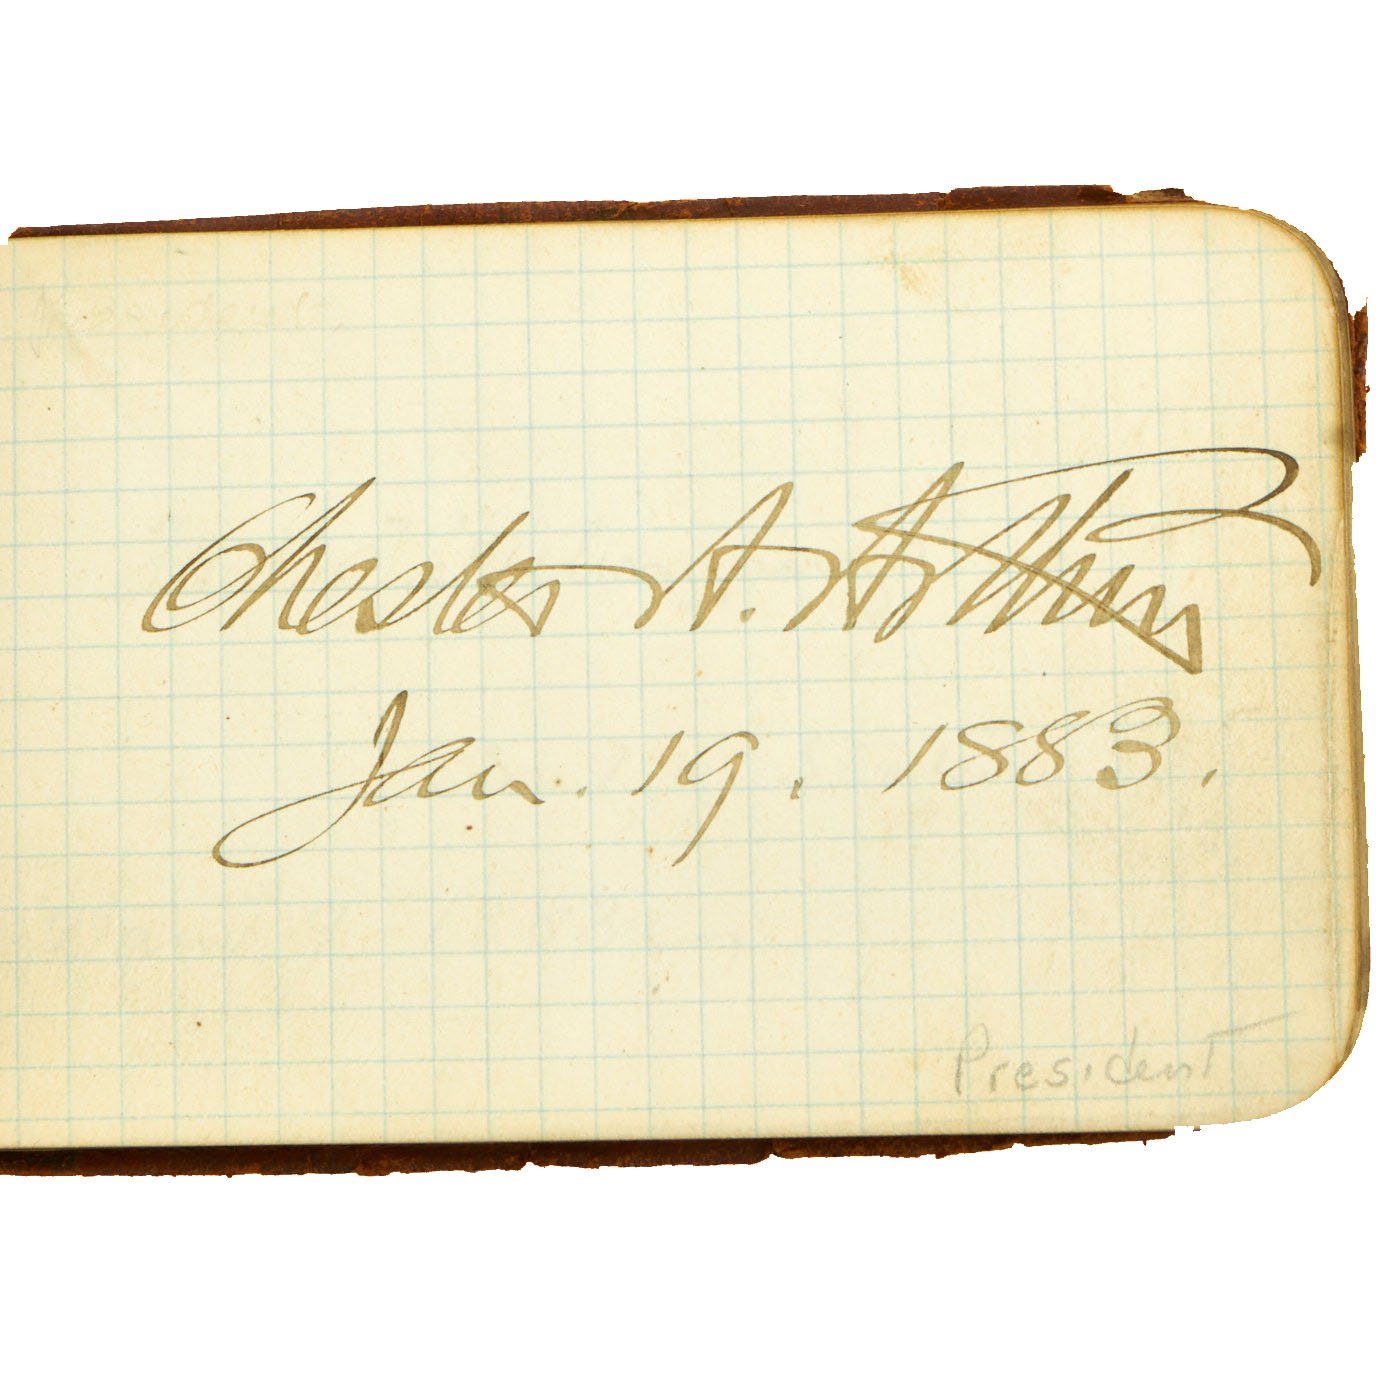 Chester A. Arthur
Jan. 19. 1883.
President